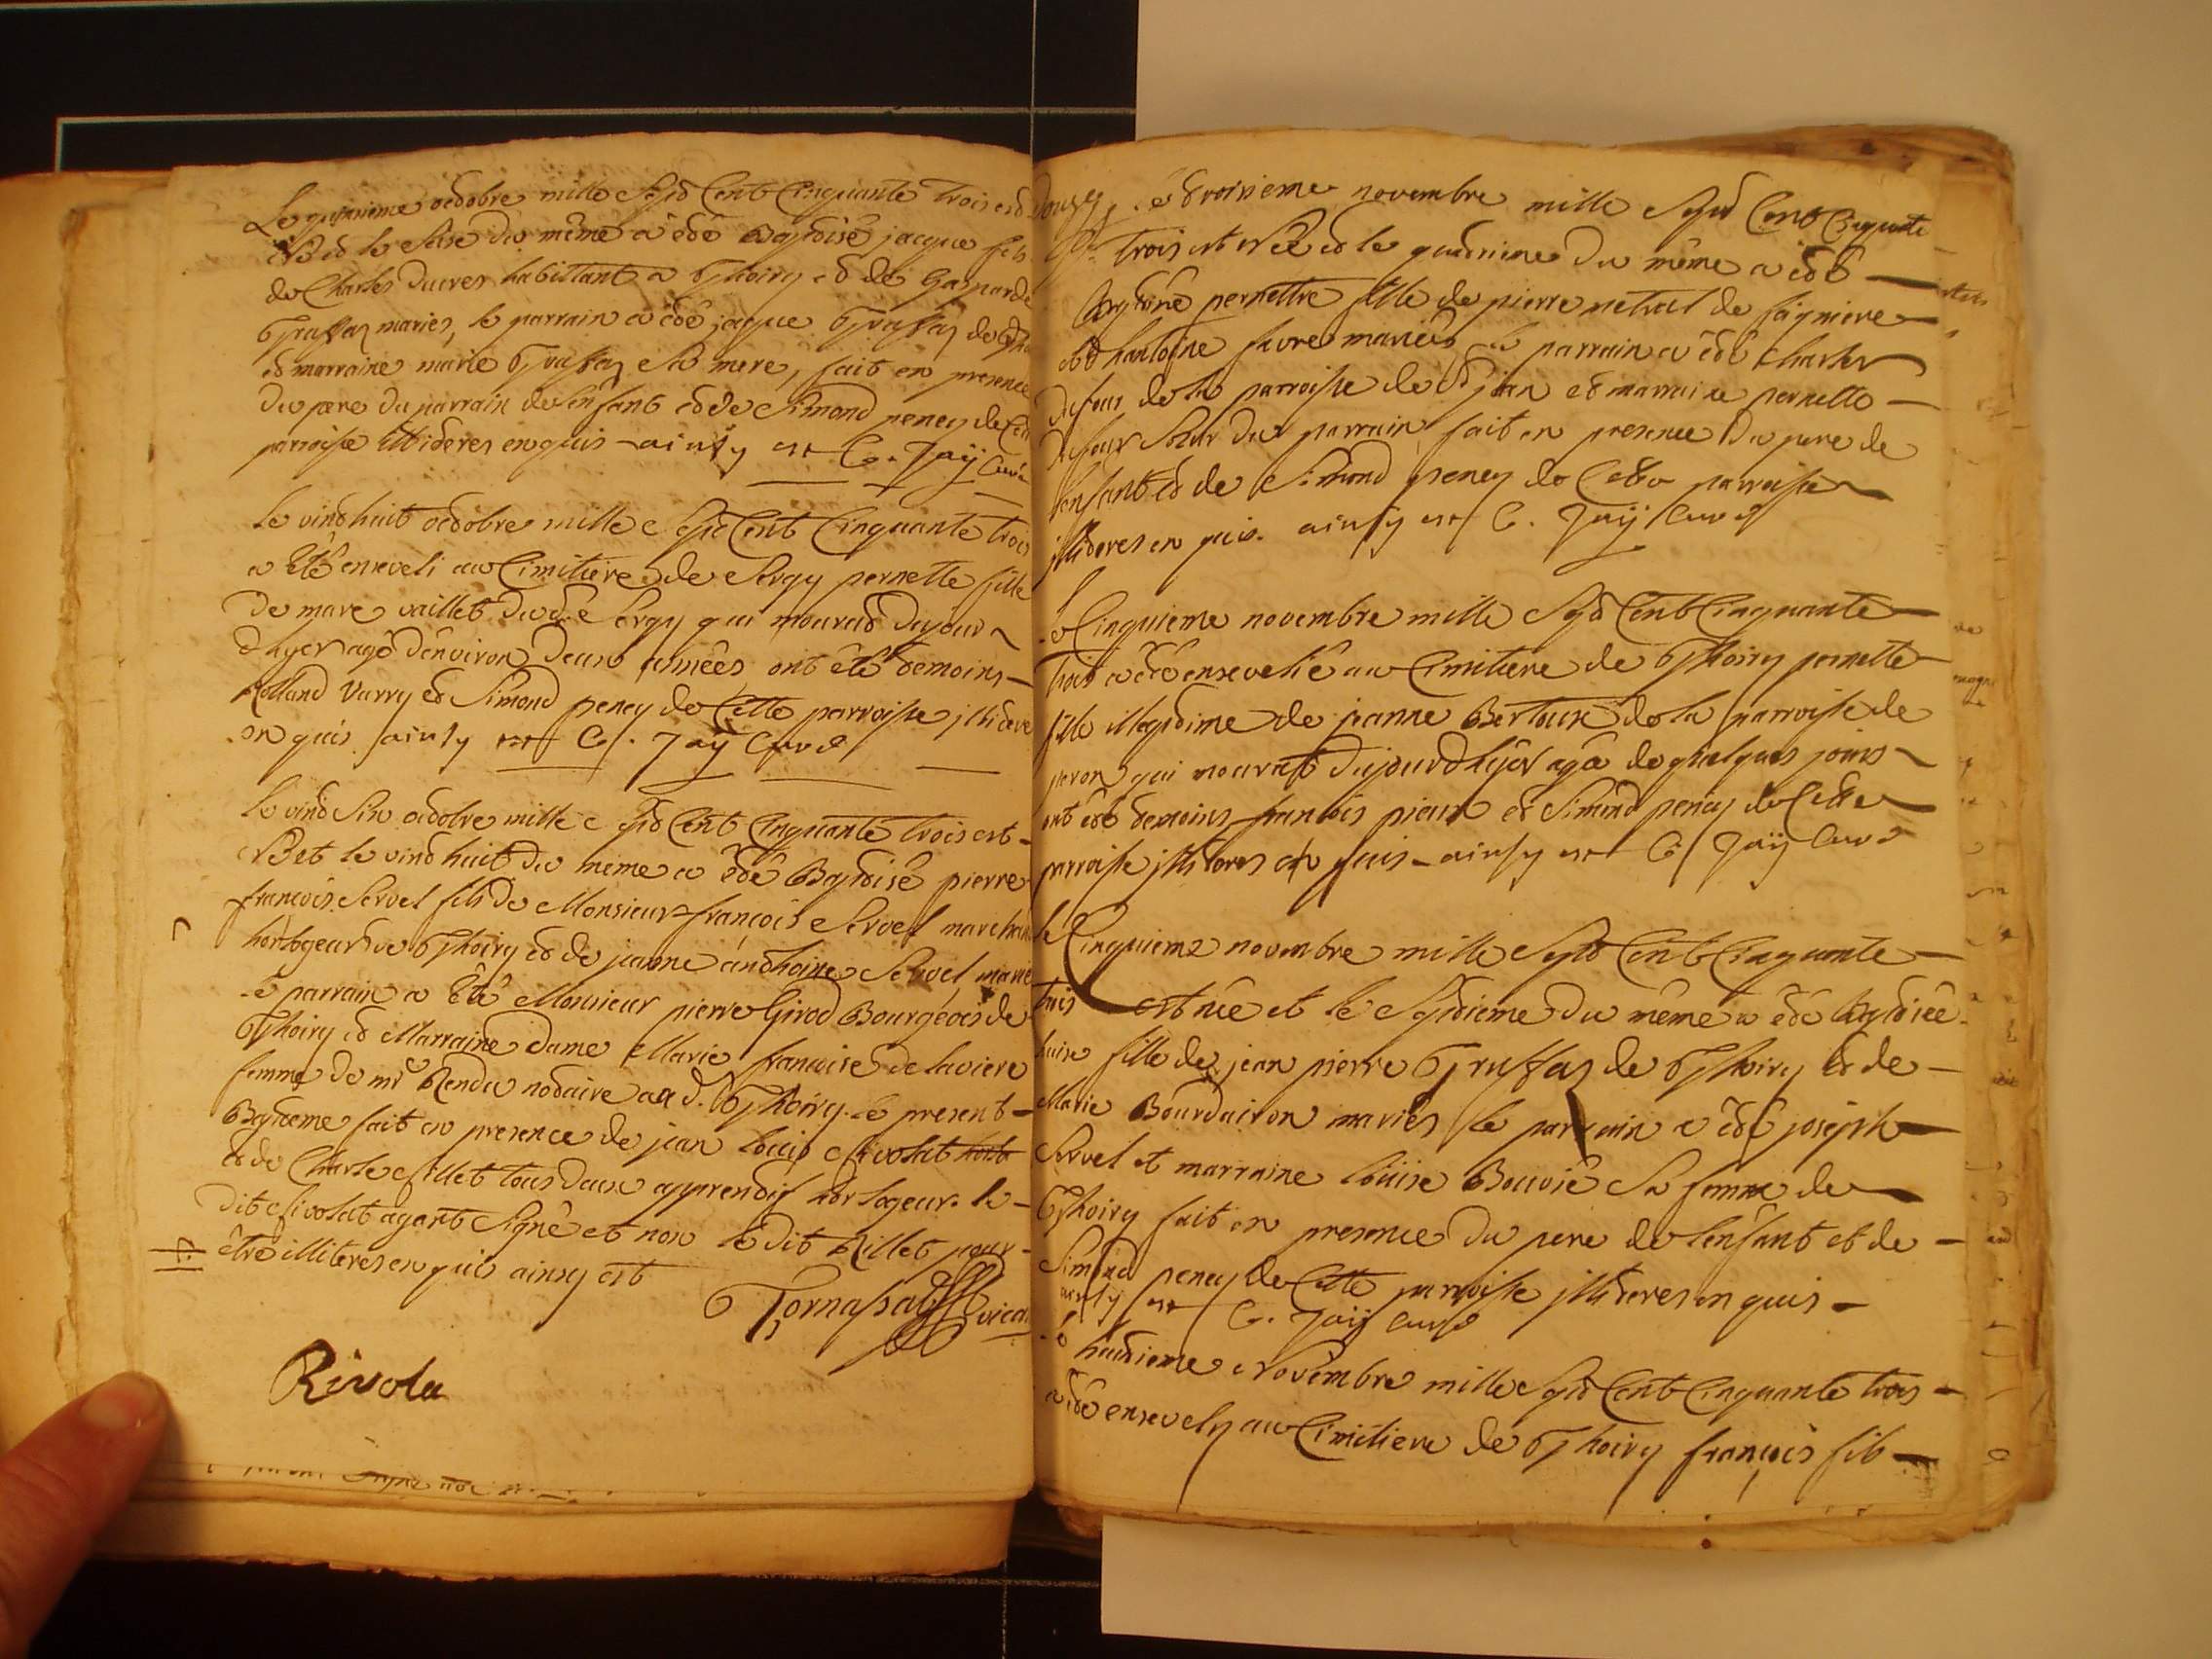 Le quinsieme octobre mille sept Cent Cinquante trois est
Né et le sese du même a été Baptisé jacque fils
de Charles ducret habittant a Thoiry et de Gasparde
Truffaz mariés, le parrain a été jacque Truffaz de
et marraine marie Truffaz sa mere, fait en presence
du pere du parrain de l'enfant et de Simond peney de
parroisse illiteres enquis ainsy est C. Jaÿ Curé
le vint huit octobre mille sept Cent Cinquante trois
a été enseveli au Cimitiere de Sergy pernette fille
de marc vaillet dudt Sergy qui mourut dujour
d'hyer agé d'environ deux années ont été temoins
Rolland Varry et Simond peney de Cette parroisse illitere
en quis ainsy est C. Jaÿ Curé
le vint six octobre mille sept Cent Cinquante trois est
Né et le vint huit du meme a été Baptisé pierre
françois Servel fils de Monsieur françois Servel marchan
horlogeur de Thoiry et de jeanne anthoine Servel marié
le parrain a Eté Monsieur pierre Girod Bourgeois de
Thoiry et Marraine dame Marie francoise de laviere
femme de mr Rendu notaire aud. Thoiry. le present
Bapteme fait en presence de jean loüis Rivolat
et de Charle Rillet tous deux apprentif horlogeur. le
dit Rivolat ayant Signé et non le dit Rillet pour
être illiteres enquis ainsy est
Tornassat vicai
Rivola
troisieme novembre mille sept Cent Cinquante
trois est Née et le quatrieme du même a été
Baptisée pernettre fille de pierre netral de faigniere
et d'hantoine favre mariés le parrain a été Charles
dufour de la parroisse de St jean et marraine pernette
dufour soeur du parrain fait en presence du pere de
lenfant et de Simond peney de Cette parroisse
illiteres en quis. ainsy est C. Jaÿ Curé
le Cinquieme novembre mille sept Cent Cinquante
trois a été ensevelie au Cimitiere de Thoiry pernette
fille illegitime de jeanne Bertoux de la parroisse de
peron qui mourut dujourd'hyer agée de quelques jours
ont été temoins francois et Simond peney de Cette
parroisse illiteres en quis ainsy est C. Jaÿ Curé
le Cinquieme novembre mille sept Cent Cinquante
trois est née et le Septieme du même a été Baptisée
fille de jean pierre Truffaz de Thoiry et de
Marie Bourdairon mariés le parrain a été joseph
Servel et marraine loüise Bouvié sa femme de
Thoiry fait en presence du pere de l'enfant et de
Simond peney de Cette parroisse illiteres en quis
ainsy est C. Jaÿ Curé
le huitieme Novembre mille sept Cent Cinquante trois
a été ensevely au Cimitiere de Thoiry françois fils